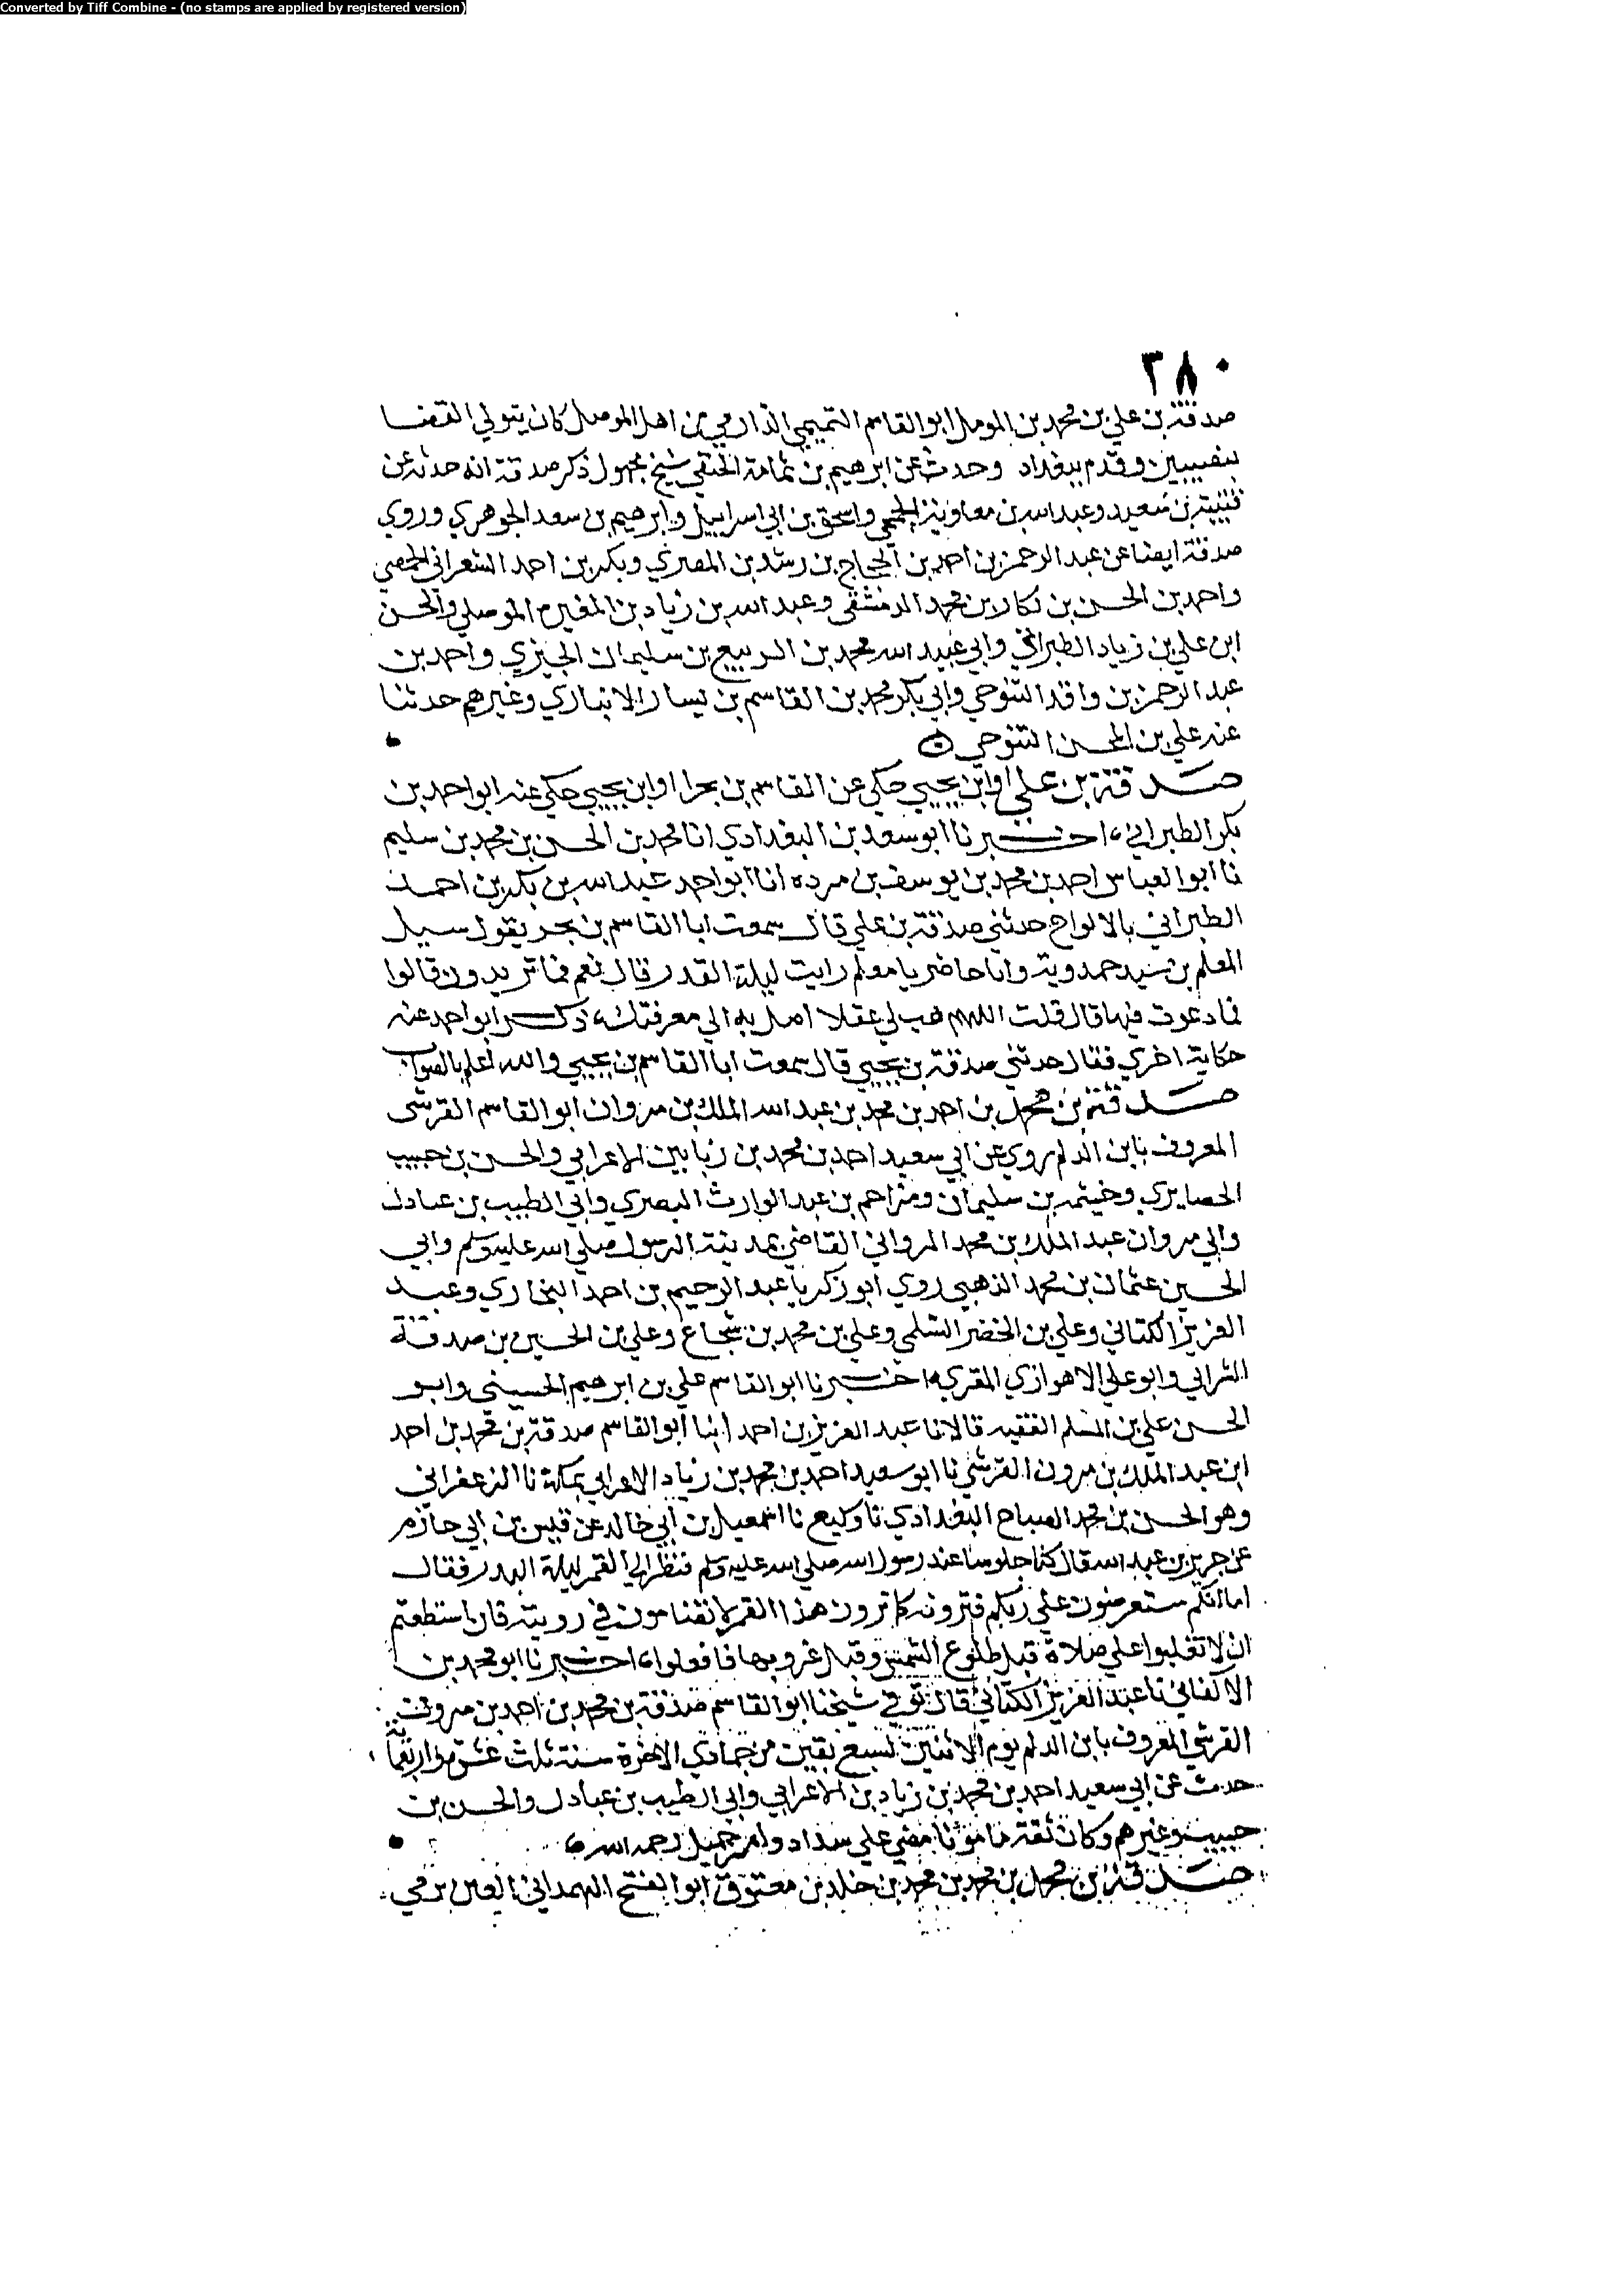 Converted by Tiff Combine - (no stamps are applied by registered version)
٣٨٠
صدقة بن علي بن محمد بن المومل ابو القاسم التميمي الدارمي من اهل الموصل كان يتولي القضا
بنصيبين وقدم ببغداد وحدث عن ابرهيم بن ثمامة الحنفي شيخ مجهول ذكر صدقة انه حدثه عن
قتيبة بن سعيد وعبد الله بن معاوية الجمحي واسحق بن ابي اسراييل وابرهيم بن سعد الجوهري وروي
صدقة ايضا عن عبد الرحمن بن احمد بن الحجاج بن رشد بن المصري وبكر بن احمد الشعراني الحمصي
واحمد بن الحسن بن بكار بن محمد الدمشقي وعبد الله بن زياد بن المغيره الموصلي والحسن
ابن علي بن زياد الطبراني وابي عبيد الله محمد بن الربيع بن سليمان الجيزي واحمد بن
عبد الرحمن بن واقد التنوخي وابي بكر محمد بن القاسم بن يسار الانباري وغيرهم حدثنا
عنه علي بن المحسن التنوخي
صدقة بن علي او ابن يحيي حكي عن القاسم بن بحر او ابن يحيي حكي عنه ابو احمد بن
بكر الطبراني، اخبرنا ابو سعد بن البغدادي انا محمد بن الحسن بن محمد بن سليم
نا ابو العباس احمد بن محمد بن يوسف بن مرده انا ابو احمد عبد الله بن بكر بن احمد
الطبراني بالالواح حدثني صدقة بن علي قال سمعت ابا القاسم بن بحر يقول سيل
المعلم بن سيد حمدوية وانا حاضر يا معلم رايت ليلة القدر قال نعم فما تريدون قالوا
فما دعوت فيها قال قلت اللهم هب لي عقلا اصل به الي معرفتك، ذكر ابو احمد عنه
حكاية اخري فقال حدثني صدقة بن يحيي قال سمعت ابا القاسم بن يحيي والله اعلم بالصواب
صدقة بن محمد بن احمد بن محمد بن عبد الله الملك بن مروان ابو القاسم القرشي
المعروف بابن الدلم روي عن ابي سعيد احمد بن محمد بن زيا بين الاعرابي والحسن بن حبيب
الحصايري وخيثمه بن سليمان ومزاحم بن عبد الوارث البصري وابي الطيب بن عبادل
وابي مروان عبد الملك بن محمد المرواني القاضي بمدينة الرسول صلي الله عليه وسلم وابي
الحسين عثمان بن محمد الذهبي روي ابو زكريا عبد الرحيم بن احمد البخاري وعبد
العزيز الكتاني وعلي بن الخضر السلمي وعلي بن محمد بن شجاع وعلي بن الحسين بن صدقة
الشرابي وابو علي الاهوازي المقري، اخبرنا ابو القاسم علي بن ابرهيم الحسيني وابو
الحسن علي بن المسلم الفقيه قالا نا عبد العزيز بن احمد انبا ابو القاسم صدقة بن محمد بن احمد
ابن عبد الملك بن مرون القرشي نا ابو سعيد احمد بن محمد بن زياد الاعرابي بمكة نا الزعفراني
وهو الحسن بن محمد الصباح البغدادي نا وكيع نا اسمعيل بن ابي خالد عن قيس بن ابي حازم
عن جرير بن عبد الله قال كنا جلوسا عند رسول الله صلي الله عليه وسلم فنظر الي القمر ليلة البدر فقال
اما انكم ستعرضون علي ربكم فترونه كما ترون هذا القمر لا تضامون في رويته فان استطعتم
ان لا تغلبوا علي صلاة قبل طلوع الشمس وقبل غروبها فافعلوا، اخبرنا ابو محمد بن
الاكفاني نا عبد العزيز الكتاني قال توفي شيخنا ابو القاسم صدقة بن محمد بن احمد بن مروان
القرشي المعروف بابن الدلم يوم الاثنين لسبع بقين من جمادي الاخرة سنة ثلث عشرة واربعماية
حدث عن ابي سعيد احمد بن محمد بن زياد بن الاعرابي وابي الطيب بن عبادل والحسن بن
حبيب وغيرهم وكان ثقة مامونا مضي علي سداد وامر جميل رحمه الله
صدقة بن محمد بن محمد بن محمد بن خالد بن معتوق ابو الفتح الهمداني العين ثرمي